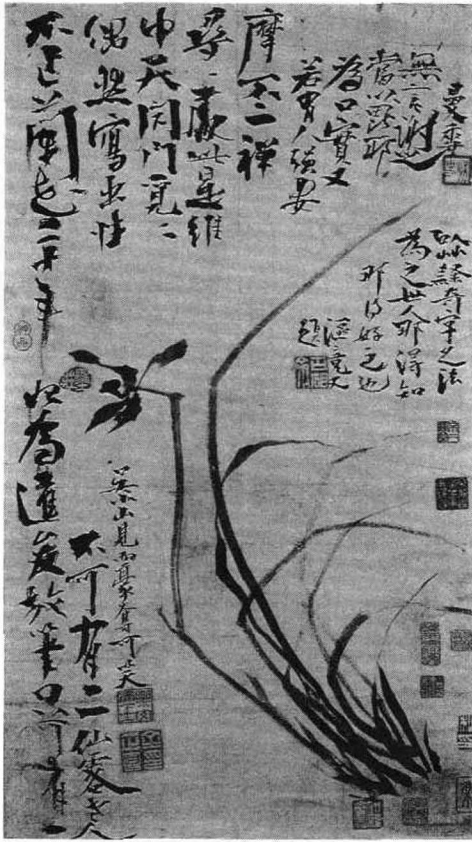 不作蘭花二十年
偶然寫出性
中天閉門覓〻
尋〻處此是維
摩不二禪
若有人強要
為口實又
當以毘耶
無言謝之
曼香
以草隸奇字之法
為之世人那得知
那得好之也
漚竟又
題
始為達俊放筆只可有一
不可有二仙客老人
吳小山見而豪奪可笑